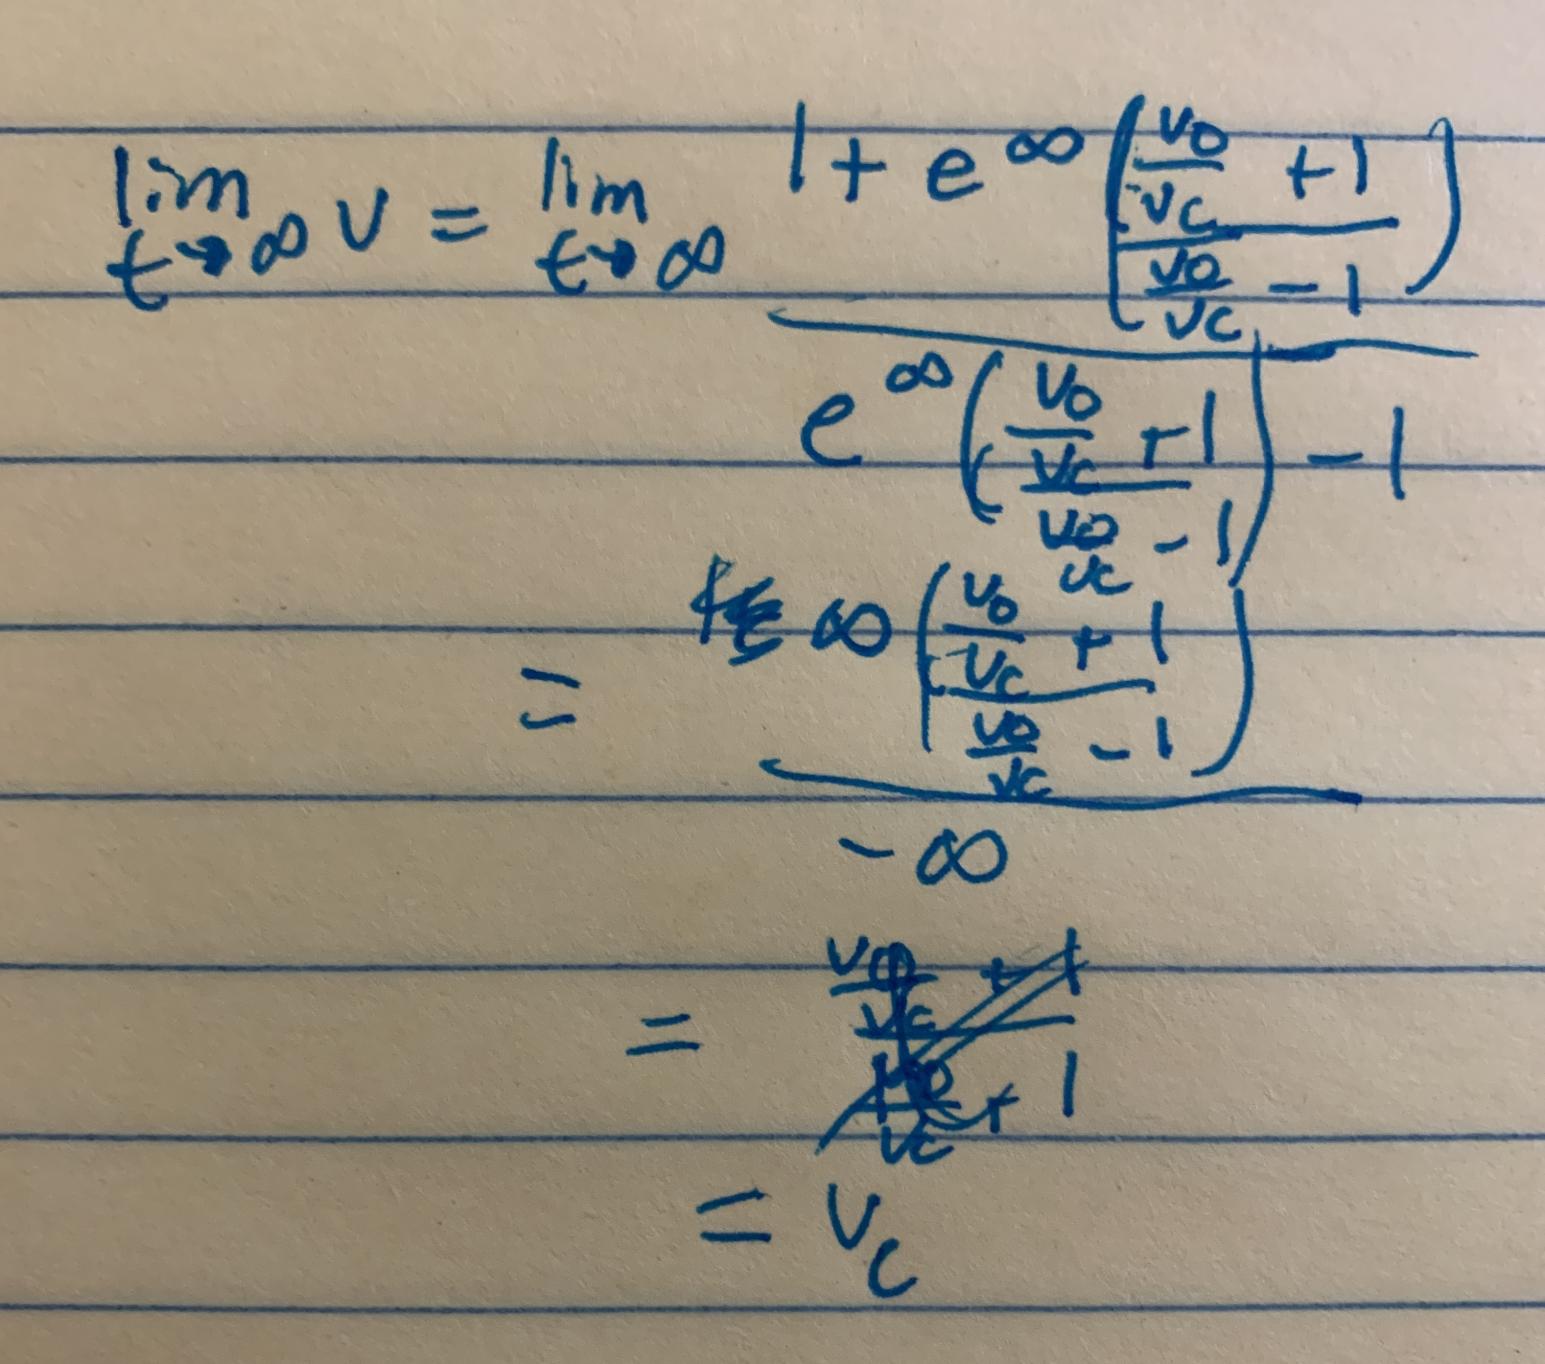 lim t→∞ v = lim t→∞ (1 + e^∞ ((v0/vc + 1)/(v0/vc - 1))) / (e^∞ ((v0/vc + 1)/(v0/vc - 1)) - 1)
= ∞ ((v0/vc + 1)/(v0/vc - 1)) / -∞
= (v0/vc + 1)/(v0/vc + 1)
= vc